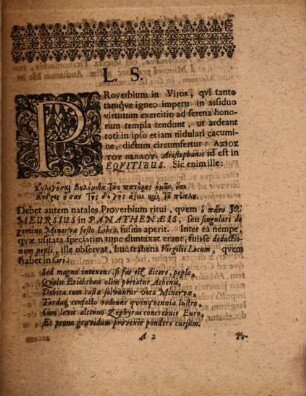 L. S.
PRoverbium in Viros, qvi tanto
tamqve igneo impetu in assiduo
virtutum exercitio ad serena honorum
templa tendunt, ut ardeant
tot in ipso etiam nidulari cacumine,
dictum circumfertur: ΑΞΙΟΣ
ΤΟΥ ΠΕΠΛΟΥ. Aristophanis id est in
EQVITIBUS. Sic enim ille:
Debet autem natales Proverbium ritui, quem ὁ πάνυ JO.
MEURSIUS in PANATHENAEIS, seu singulari de
gemino Minervae festo Libro, fusius aperit. Inter ea nempe,
quae usitata spectatum tunc
nem pepli, ille observat, huc trahens Virgilii Locum, quem
habet in
Aed magno intexens, si fas est dicere, peplo,
Qualis Erichtheis olim portatur Athenis,
Debita cum castae solvuntur vota Minervae,
Tardaque confecto redeunt quinquennia lustro,
Cum levis alterno Zephyrus concrebuit Euro,
Et prono gravidum provexit pondere cursum.
A 2